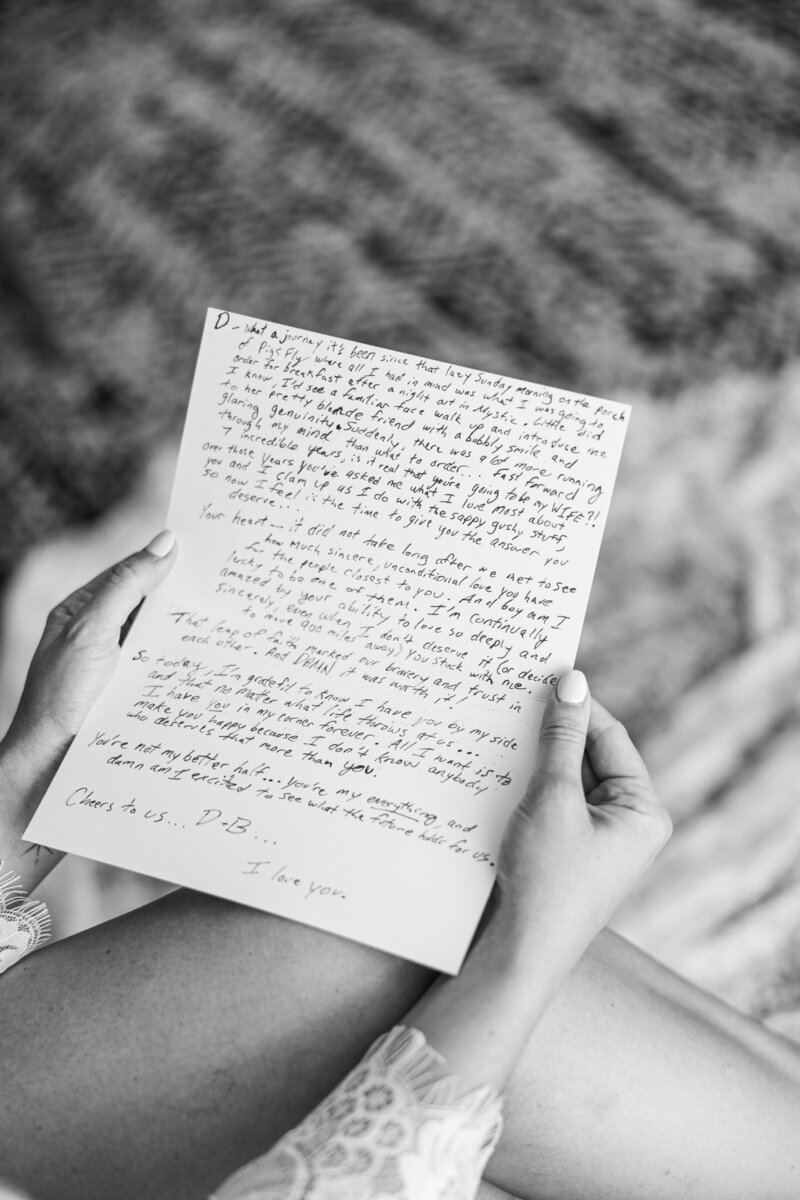 D - What a journey it's been since that lazy Sunday morning on the porch
of Pigs Fly, where all I had in mind was what I was going to
order for breakfast after a night out in Mystic. Little did
I know, I'd see a familiar face walk up and introduce me
to her pretty blonde friend with a bubbly smile and
glaring genuinity. Suddenly, there was a lot more running
through my mind than what to order... Fast forward
7 incredible years, is it real that you're going to be my WIFE?!
Over those years you've asked me what I love most about
you and I clam up as I do with the sappy gushy stuff,
so now I feel is the time to give you the answer you
deserve...
Your heart - it did not take long after we met to see
how much sincere, unconditional love you have
for the people closest to you. And boy am I
lucky to be one of them. I'm continually
amazed by your ability to love so deeply and
sincerely, even when I don't deserve it (or decide
to move 900 miles away) you stuck with me.
That leap of faith marked our bravery and trust in
each other. And DAMN it was worth it!
So today, I'm grateful to know I have you by my side
and that no matter what life throws at us...
I have you in my corner forever. All I want is to
make you happy because I don't know anybody
who deserves that more than you.
You're not my better half... you're my everything, and
damn am I excited to see what the future holds for us.
Cheers to us... D+B...
I love you.